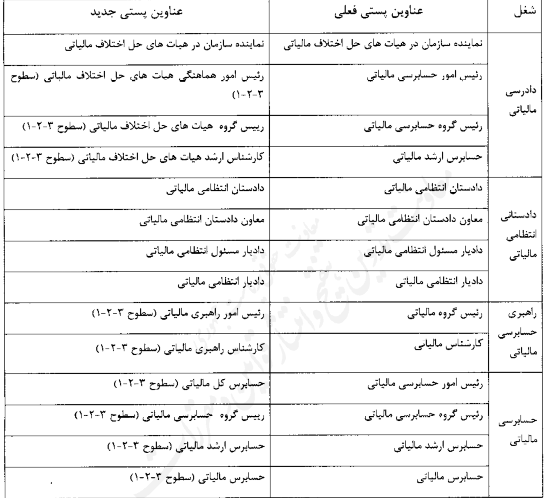 شغل عناوین پستی فعلی عناوین پستی جدید
دادرسی مالیاتی
نماینده سازمان در هیات های حل اختلاف مالیاتی نماینده سازمان در هیات های حل اختلاف مالیاتی
رئیس امور حسابرسی مالیاتی رئیس امور هماهنگی هیات های حل اختلاف مالیاتی (سطوح
۳-۲-۱)
رئیس گروه حسابرسی مالیاتی رییس گروه هیات های حل اختلاف مالیاتی (سطوح ۳-۲-۱)
حسابرس ارشد مالیاتی کارشناس ارشد هیات های حل اختلاف مالیاتی (سطوح ۳-۲-۱)
دادستانی انتظامی مالیاتی
دادستان انتظامی مالیاتی دادستان انتظامی مالیاتی
معاون دادستان انتظامی مالیاتی معاون دادستان انتظامی مالیاتی
دادیار مسئول انتظامی مالیاتی دادیار مسئول انتظامی مالیاتی
دادیار انتظامی مالیاتی دادیار انتظامی مالیاتی
راهبری حسابرسی مالیاتی
رئیس گروه مالیاتی رئیس امور راهبری مالیاتی (سطوح ۳-۲-۱)
کارشناس مالیاتی کارشناس راهبری مالیاتی (سطوح ۳-۲-۱)
حسابرسی مالیاتی
رئیس امور حسابرسی مالیاتی حسابرس کل مالیاتی (سطوح ۳-۲-۱)
رئیس گروه حسابرسی مالیاتی رییس گروه حسابرسی مالیاتی (سطوح ۳-۲-۱)
حسابرس ارشد مالیاتی حسابرس ارشد مالیاتی (سطوح ۳-۲-۱)
حسابرس مالیاتی حسابرس مالیاتی (سطوح ۳-۲-۱)